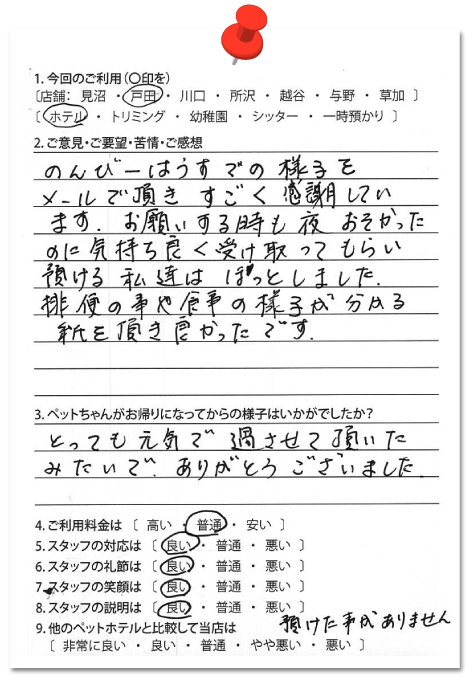 1. 今回のご利用(〇印を)
〔店舗: 見沼 ・ 戸田 ・ 川口 ・ 所沢 ・ 越谷 ・ 与野 ・ 草加 〕
〔 ホテル ・ トリミング ・ 幼稚園 ・ シッター ・ 一時預かり 〕
2. ご意見・ご要望・苦情・ご感想
のんびーはうすでの様子を
メールで頂き すごく感謝してい
ます. お願いする時も夜 おそかった
のに気持ち良く受け取ってもらい
預ける私達は ほっとしました.
排便の事や食事の様子が分かる
紙を頂き良かったです.
3. ペットちゃんがお帰りになってからの様子はいかがでしたか?
とっても元気で 過させて頂いた
みたいで. ありがとうございました.
4. ご利用料金は 〔 高い ・ 普通 ・ 安い 〕
5. スタッフの対応は 〔 良い ・ 普通 ・ 悪い 〕
6. スタッフの礼節は 〔 良い ・ 普通 ・ 悪い 〕
7. スタッフの笑顔は 〔 良い ・ 普通 ・ 悪い 〕
8. スタッフの説明は 〔 良い ・ 普通 ・ 悪い 〕
9. 他のペットホテルと比較して当店は 預けた事がありません
〔 非常に良い ・ 良い ・ 普通 ・ やや悪い ・ 悪い 〕